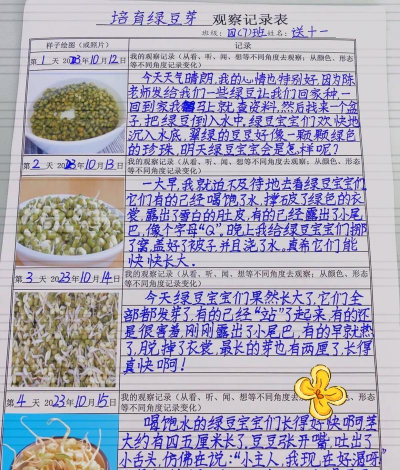 培育绿豆芽 观察记录表
班级：四(7)班姓名：送十一
样子绘图（或照片） 记录
第1天 2023年10月12日
我的观察记录（从看、听、闻、想等不同角度去观察；从颜色、形态等不同角度记录变化）
今天天气晴朗,我的心情也特别好,因为陈
老师发给我们一些绿豆让我们回家种,一
回到家我马上就查资料,然后找来一个盆
子,把绿豆倒入水中,绿豆宝宝们欢快地
沉入水底,翠绿的豆豆好像一颗颗绿色
的珍珠,明天绿豆宝宝会是怎样呢?
第2天 2023年10月13日
我的观察记录（从看、听、闻、想等不同角度去观察；从颜色、形态等不同角度记录变化）
一大早,我就迫不及待地去看绿豆宝宝们,
它们有的已经喝饱了水,撑破了绿色的衣
裳,露出了雪白的肚皮,有的已经露出了小尾
巴,像个字母“Q”,晚上我给绿豆宝宝们挪
了窝,盖好了被子,并且浇了水。真希它们能
快快长大.
第3天 2023年10月14日
我的观察记录（从看、听、闻、想等不同角度去观察；从颜色、形态等不同角度记录变化）
今天绿豆宝宝们果然长大了,它们全
部都发芽了,有的已经“站”了起来,有的还
是很害羞,刚刚露出了小尾巴,有的早就热
了,脱掉了衣裳,最长的芽也有两厘了,长得
真快啊!
第4天 2023年10月15日
我的观察记录（从看、听、闻、想等不同角度去观察；从颜色、形态等不同角度记录变化）
喝饱水的绿豆宝宝们长得好快啊,茎
大约有四五厘米长了,豆豆张开嘴,吐出了
小舌头,仿佛在说:“小主人,我现在好渴呀